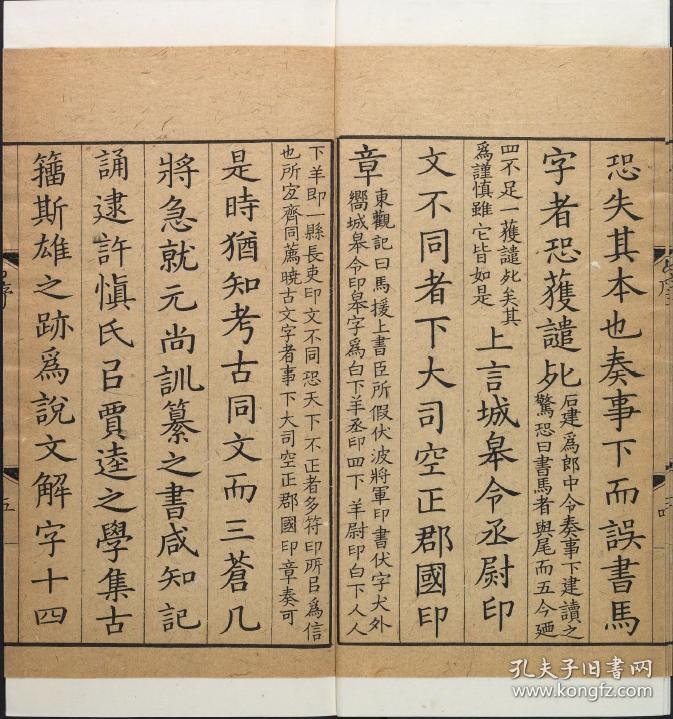 恐失其本也奏事下而誤書馬
字者恐獲譴死
石建爲郎中令奏事下建讀之
驚恐曰書馬者與尾而五今廼
四不足一獲譴死矣其
爲謹慎雖它皆如是
上言城皋令丞尉印
文不同者下大司空正郡國印
章
東觀記曰馬援上書臣所假伏波將軍印書伏字犬外
嚮城皋令印皋字爲白下羊丞印四下羊尉印白下人人
下羊即一縣長吏印文不同恐天下不正者多符印所㠯爲信
也所宐齊同薦曉古文字者事下大司空正郡國印章奏可
是時猶知考古同文而三蒼凡
將急就元尚訓纂之書咸知記
誦逮許愼氏㠯賈逵之學集古
籀斯雄之跡爲說文解字十四
五
孔夫子旧书网
www.kongfz.com